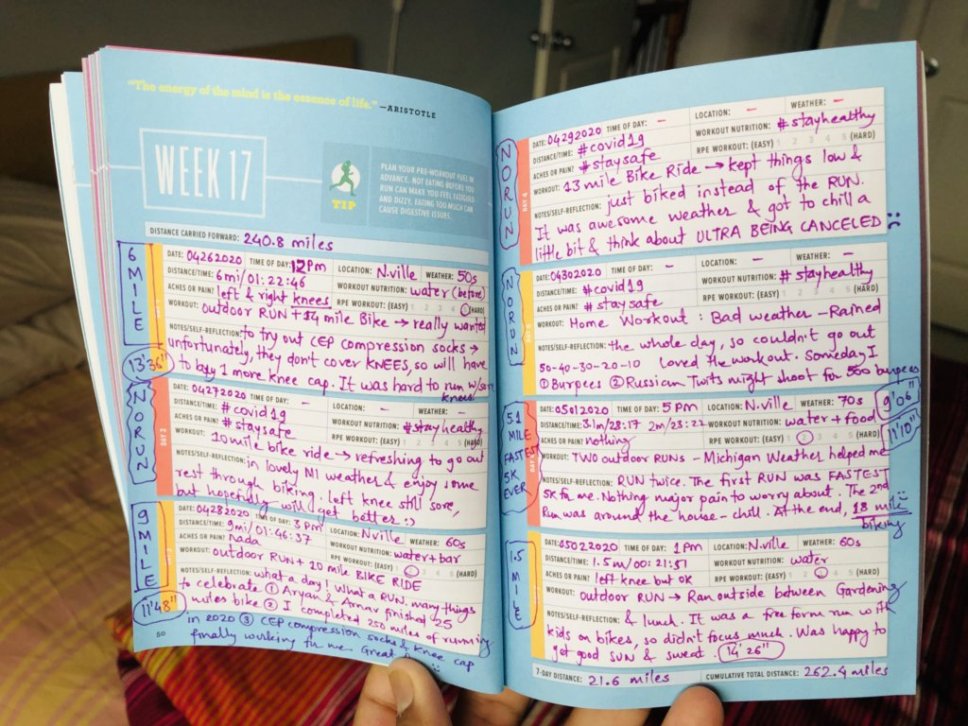 "The energy of the mind is the essence of life." —ARISTOTLE
WEEK 17
TIP
PLAN YOUR PRE-WORKOUT FUEL IN
ADVANCE. NOT EATING BEFORE YOU
RUN CAN MAKE YOU FEEL FATIGUED
AND DIZZY, EATING TOO MUCH CAN
CAUSE DIGESTIVE ISSUES.
DISTANCE CARRIED FORWARD: 240.8 miles
6 MILE
13'36"
DATE: 04262020 TIME OF DAY: 12pm LOCATION: N.ville WEATHER: 50s
DISTANCE/TIME: 6mi/01:22:46 WORKOUT NUTRITION: water (before)
ACHES OR PAIN? left & right knees RPE WORKOUT: (EASY) 1 2 3 4 5 (HARD)
WORKOUT: outdoor RUN + 14 mile Bike → really wanted
NOTES/SELF-REFLECTION: to try out CEP compression socks →
unfortunately, they don't cover KNEES, so will have
to buy 1 more knee cap. It was hard to run w/sore
knees
NO RUN
DAY 2
DATE: 04272020 TIME OF DAY: – LOCATION: – WEATHER: –
DISTANCE/TIME: #covid19 WORKOUT NUTRITION: #stayhealthy
ACHES OR PAIN? #staysafe RPE WORKOUT: (EASY) 1 2 3 4 5 (HARD)
WORKOUT: 10 mile bike ride → refreshing to go out
NOTES/SELF-REFLECTION: in lovely MI weather & enjoy some
rest through biking. left knee still sore,
but hopefully will get better :)
9 MILE
11'48"
DATE: 04282020 TIME OF DAY: 3pm LOCATION: Nville WEATHER: 60s
DISTANCE/TIME: 9mi/01:46:37 WORKOUT NUTRITION: water+bar
ACHES OR PAIN? Nada RPE WORKOUT: (EASY) (HARD)
WORKOUT: outdoor RUN + 10 mile BIKE RIDE
NOTES/SELF-REFLECTION: what a day! What a RUN. many things
to celebrate ① Aryan & Arnav finished 25
miles bike ② I completed 250 miles of running
in 2020 ③ CEP compression socks & knee cap
finally working for me. Great
50
NO RUN
DAY 4
DATE: 04292020 TIME OF DAY: – LOCATION: – WEATHER: –
DISTANCE/TIME: #covid19 WORKOUT NUTRITION: #stayhealthy
ACHES OR PAIN? #staysafe RPE WORKOUT: (EASY) 1 2 3 4 5 (HARD)
WORKOUT: 13 mile Bike Ride → kept things low &
NOTES/SELF-REFLECTION: just biked instead of the RUN.
It was awesome weather & got to chill a
little bit & think about ULTRA BEING CANCELED
NO RUN
DATE: 04302020 TIME OF DAY: – LOCATION: – WEATHER: –
DISTANCE/TIME: #covid19 WORKOUT NUTRITION: #stayhealthy
ACHES OR PAIN? #staysafe RPE WORKOUT: (EASY) 1 2 3 4 5 (HARD)
WORKOUT: Home Workout : Bad weather – Rained
NOTES/SELF-REFLECTION: the whole day, so couldn't go out
50-40-30-20-10 loved the workout. Someday I
① Burpees ② Russian Twits might shoot for 500 burpees
5.1 MILE FASTEST 5K EVER
9'06"
11'10"
DATE: 05012020 TIME OF DAY: 5pm LOCATION: N.ville WEATHER: 70s
DISTANCE/TIME: 3.1m/28:17 2m/23:22 WORKOUT NUTRITION: water + food
ACHES OR PAIN? nothing RPE WORKOUT: (EASY) 1 2 3 4 5 (HARD)
WORKOUT: TWO outdoor RUNS – Michigan Weather helped me
NOTES/SELF-REFLECTION: RUN twice. The first RUN was FASTEST
5K for me. Nothing major pain to worry about. The 2nd
Run was around the house – chill. At the end, 18 mile
biking
1.5 MILE
DATE: 05022020 TIME OF DAY: 1pm LOCATION: N.ville WEATHER: 60s
DISTANCE/TIME: 1.5m/00:21:51 WORKOUT NUTRITION: water
ACHES OR PAIN? left knee but ok RPE WORKOUT: (EASY) 1 2 3 4 5 (HARD)
WORKOUT: outdoor RUN → Ran outside between Gardening
NOTES/SELF-REFLECTION: & lunch. It was a free form run with
kids on bikes, so didn't focus much. Was happy to
get good SUN & sweat. 14'26"
7-DAY DISTANCE: 21.6 miles CUMULATIVE TOTAL DISTANCE: 262.4 miles